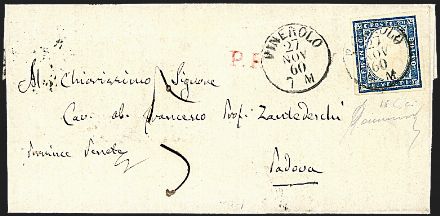 P.P.
PINEROLO
27
NOV
60
7 M
PINEROLO
27
NOV
60
M
Al Chiarissimo Signore
Cav. ab. Francesco Prof. Zantedeschi
Province Venete
Padova